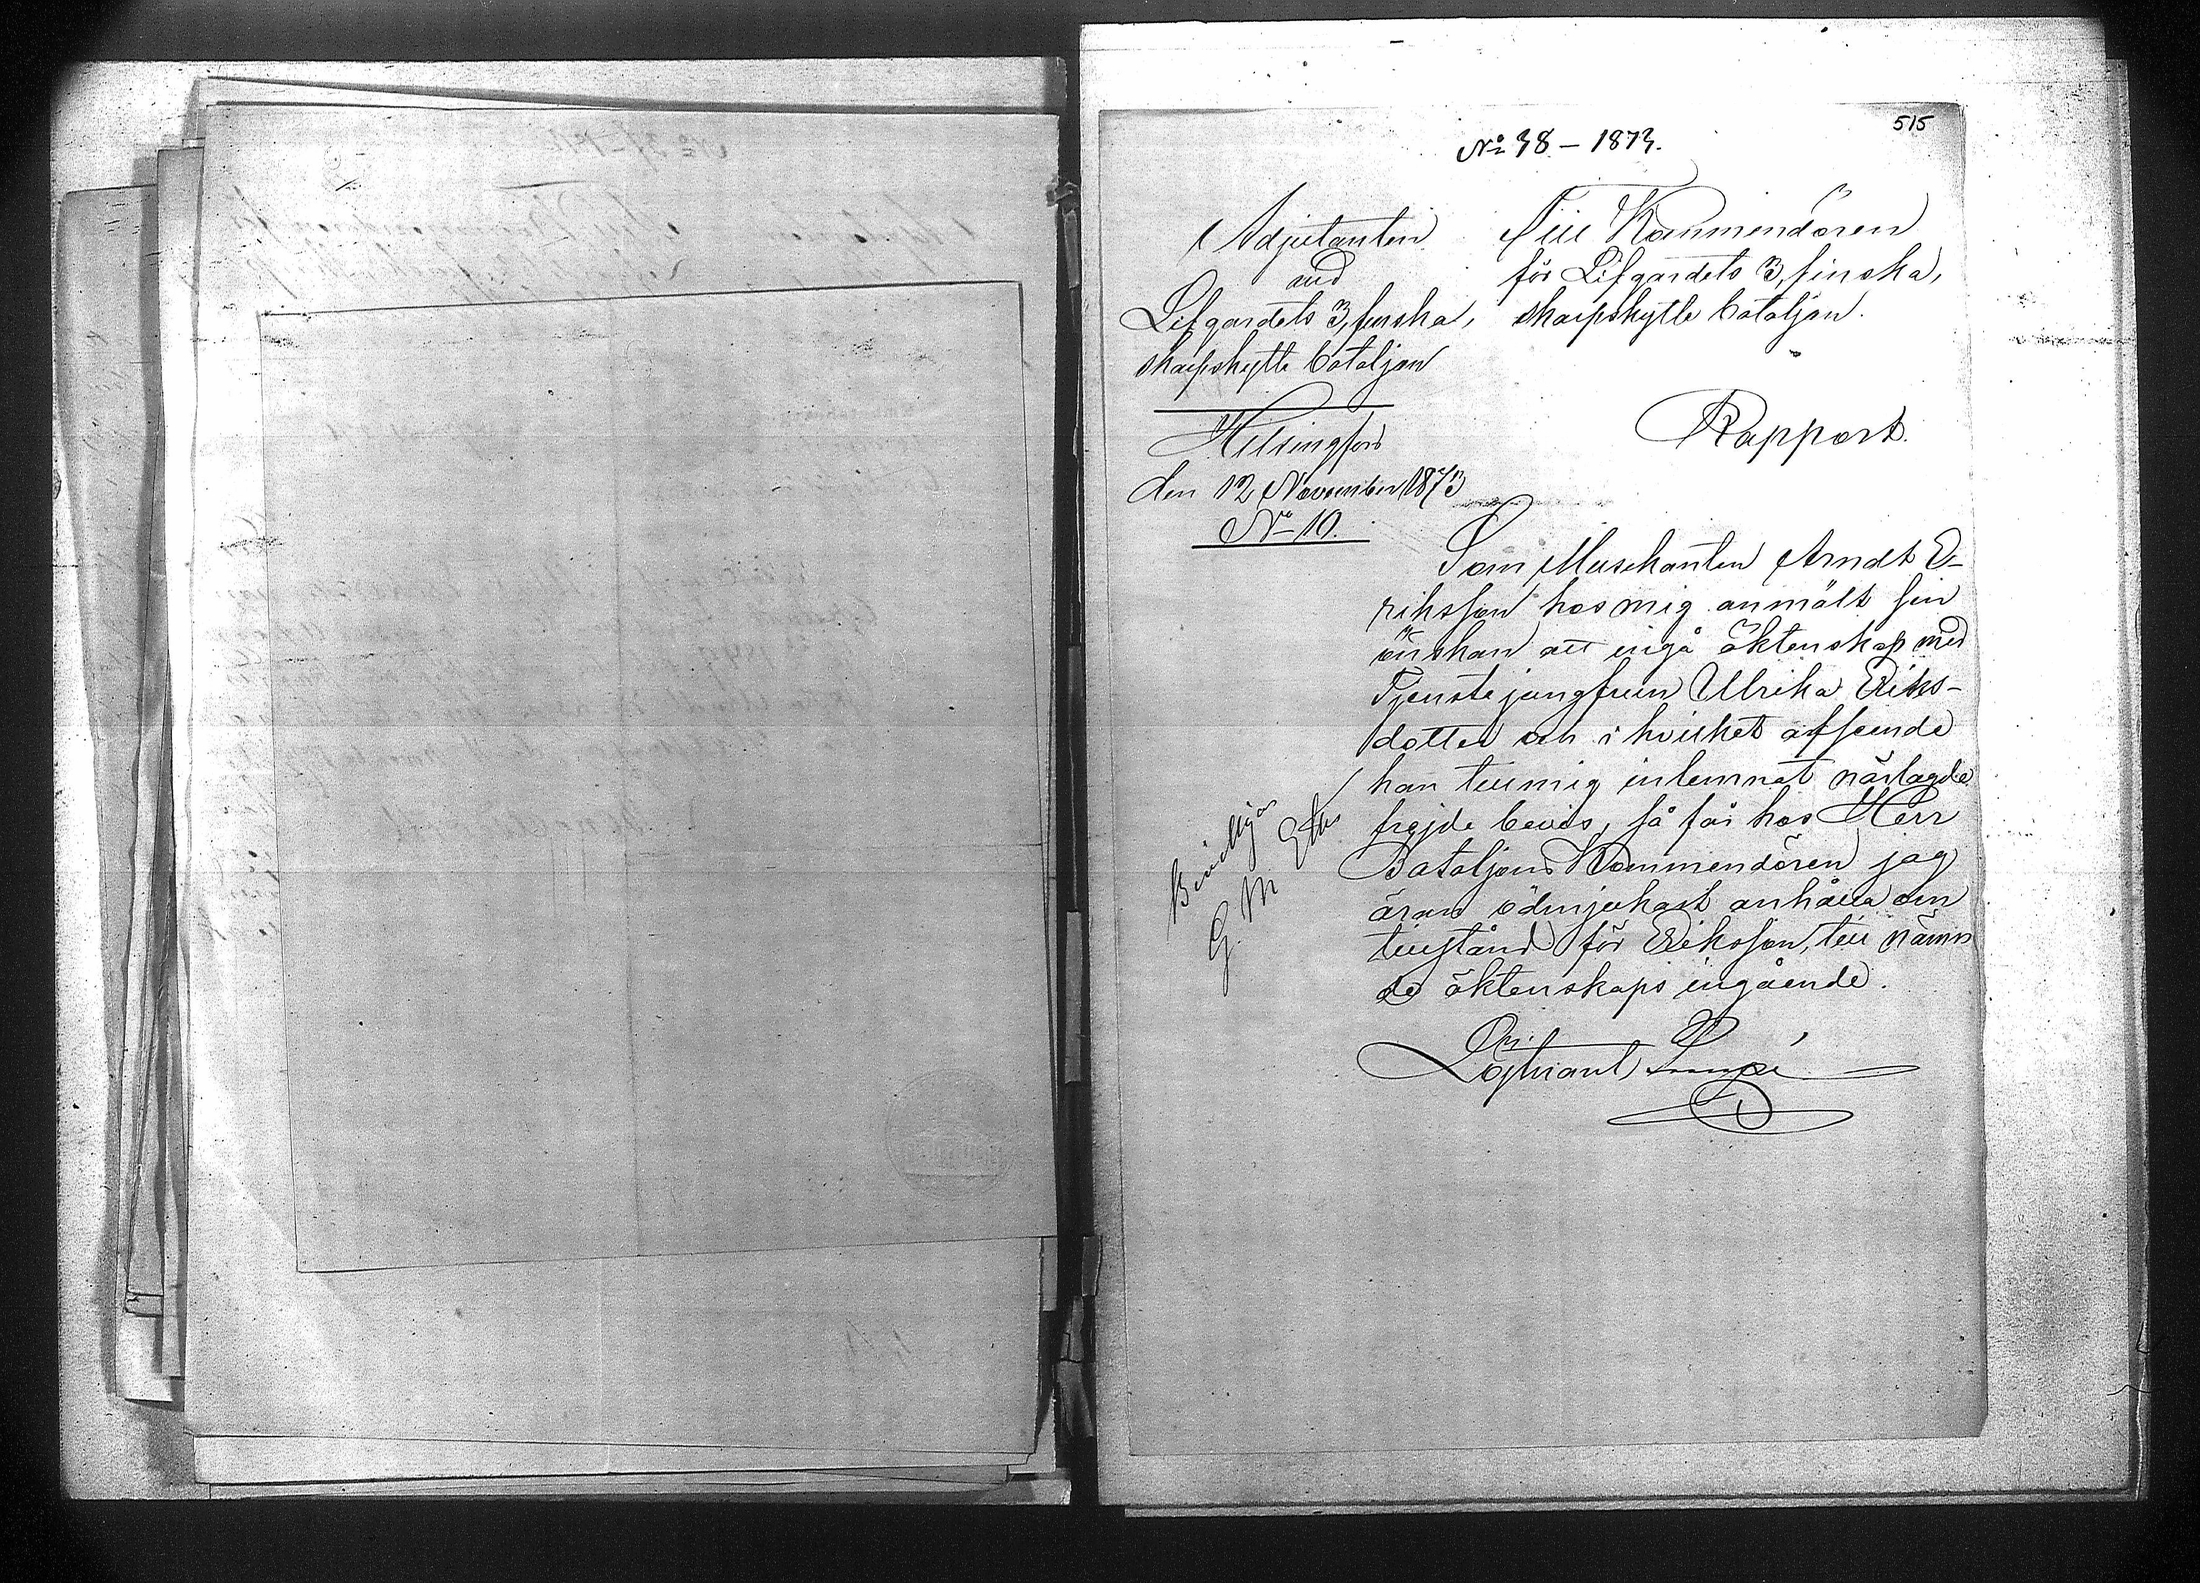 515
No 38 – 1873.
Adjutanten
vid
Lifgardets 3, finska,
skarpskytte bataljon
Helsingfors
den 12 November 1873
No 10.
Till Kommendören
för Lifgardets 3, finska,
skarpskytte bataljon.
Rapport.
Som Musikanten Arndt E-
riksson hos mig anmält sin
önskan att ingå äktenskap med
Tjenstejungfrun Ulrika Eriks-
dotter och i hvilket afseende
han till mig inlemnat närlagde
frejde bevis, så får hos Herr
Bataljons Kommendören jag
äran ödmjukast anhålla om
tillstånd för Eriksson, till nämn
de äktenskaps ingående.
Löjtnant
Beviljas
G. M.